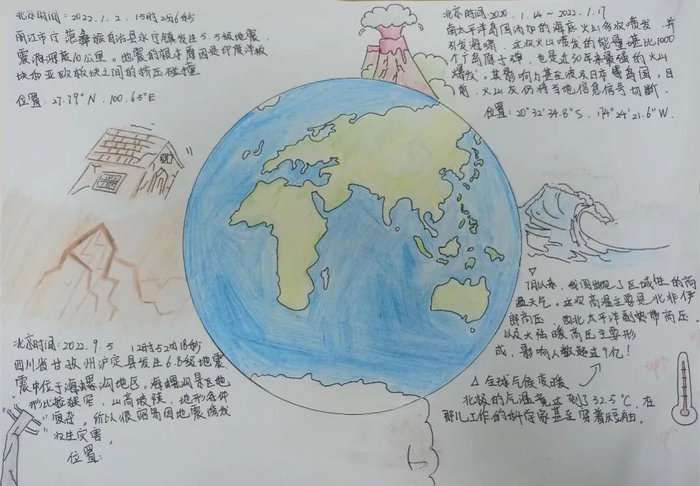 北京时间：2022.1.2. 15时02分6秒
丽江市宁蒗彝族自治县永宁镇发生5.5级地震.
震源深度10公里。地震的根本原因是印度洋板
块和亚欧板块之间的挤压碰撞
位置：27.79°N. 100.65°E
北京时间 2022.1.14～2022.1.17
南太平洋岛国汤加的海底火山多次喷发，并
引发海啸，这次火山喷发的能量堪比1000
个广岛原子弹，也是近30年来最强的火山
爆发。其影响力甚至波及日本
火山灰仍将当地信息信号切断.
位置：20°32′34.8″S，174°24′21.6″W.
7月以来，我国出现了区域性的高
温天气，这次高温主要是北非伊
朗高压 西北太平洋副热带高压
以及大陆暖高压主要形
成，影响人数超过9亿！
△全球气候变暖
北极的气温竟达到了32.5℃，在
那儿工作的科学家甚至穿着短袖.
北京时间：2022.9.5 12时52分18秒
四川省甘孜州泸定县发生6.8级地震
震中位于海螺沟地区，海螺沟景区地
形比较狭窄，山高坡陡，地形条件
复杂，所以很容易因地震诱发
次生灾害
位置：